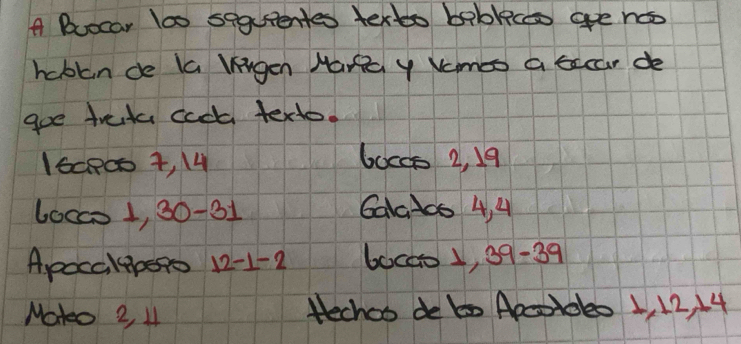 A Buscar los siguientes textos biblicos que nos
hablan de la Virgen María y vamos a sacar de
que trata cada texto.
Isaías 7,14 Lucas 2,19
Lucas 1,30-31 Galatas 4,4
Apocalipsis 12-1-2 Lucas 1,39-39
Mateo 2,11 Hechos de los Apostoles 1,12,14